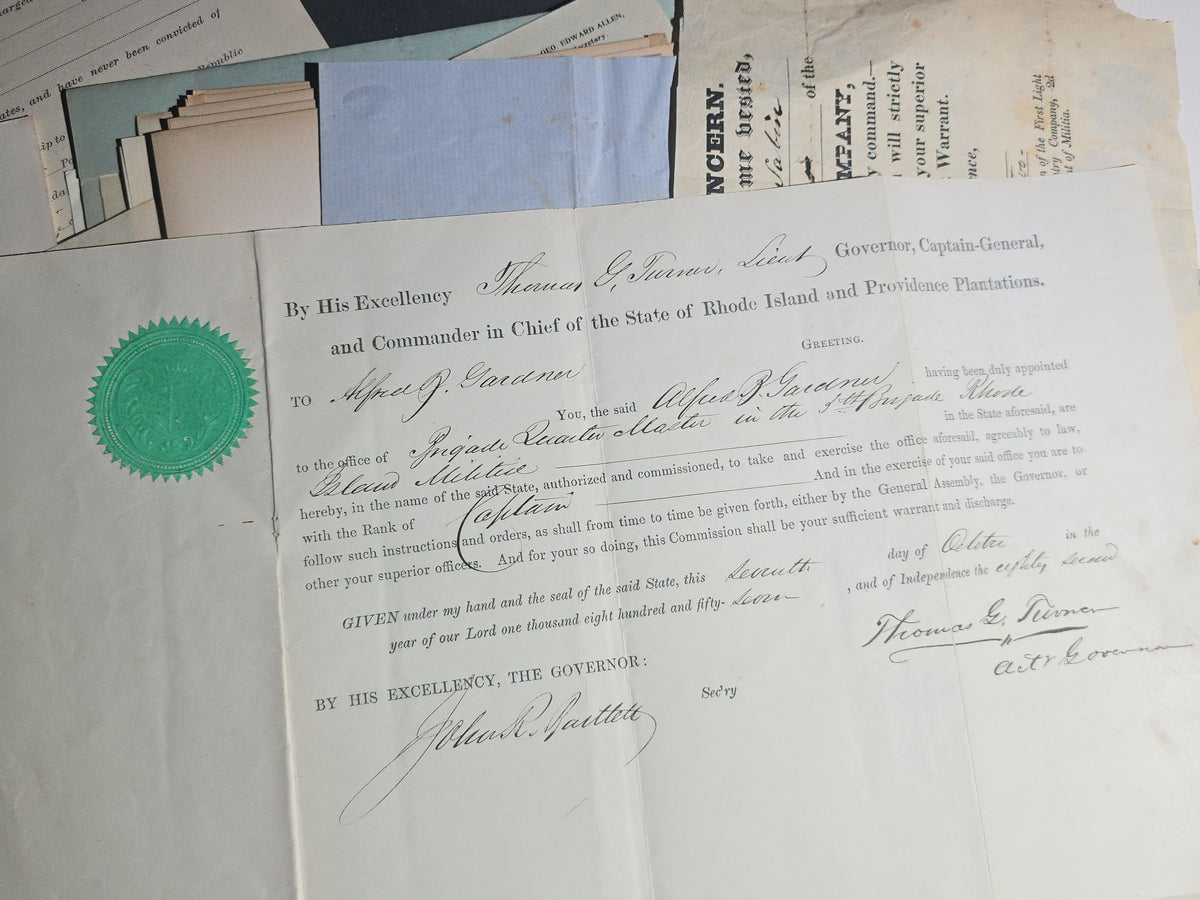 arged
ates, and have never been convicted of
Republic
GEO EDWARD ALLEN,
Secretary.
ip to
Po
da
NCERN.
me vested,
of the
MPANY,
y command.—
will strictly
your superior
Warrant.
nce,
n of the First Light
try Company, 2d
nt of Militia.
By His Excellency Thomas G. Turner, Lieut Governor, Captain-General,
and Commander in Chief of the State of Rhode Island and Providence Plantations.
GREETING.
TO Alfred B. Gardner
You, the said Alfred B. Gardner having been duly appointed
to the office of Brigade Quarter Master in the 5th Brigade Rhode
Island Militia in the State aforesaid, are
hereby, in the name of the said State, authorized and commissioned, to take and exercise the office aforesaid, agreeably to law,
with the Rank of Captain And in the exercise of your said office you are to
follow such instructions and orders, as shall from time to time be given forth, either by the General Assembly, the Governor, or
other your superior officers. And for your so doing, this Commission shall be your sufficient warrant and discharge.
GIVEN under my hand and the seal of the said State, this seventh day of October in the
year of our Lord one thousand eight hundred and fifty-seven , and of Independence the eighty second
Thomas G. Turner
Act'g Governor
BY HIS EXCELLENCY, THE GOVERNOR:
John R. Bartlett Sec'ry